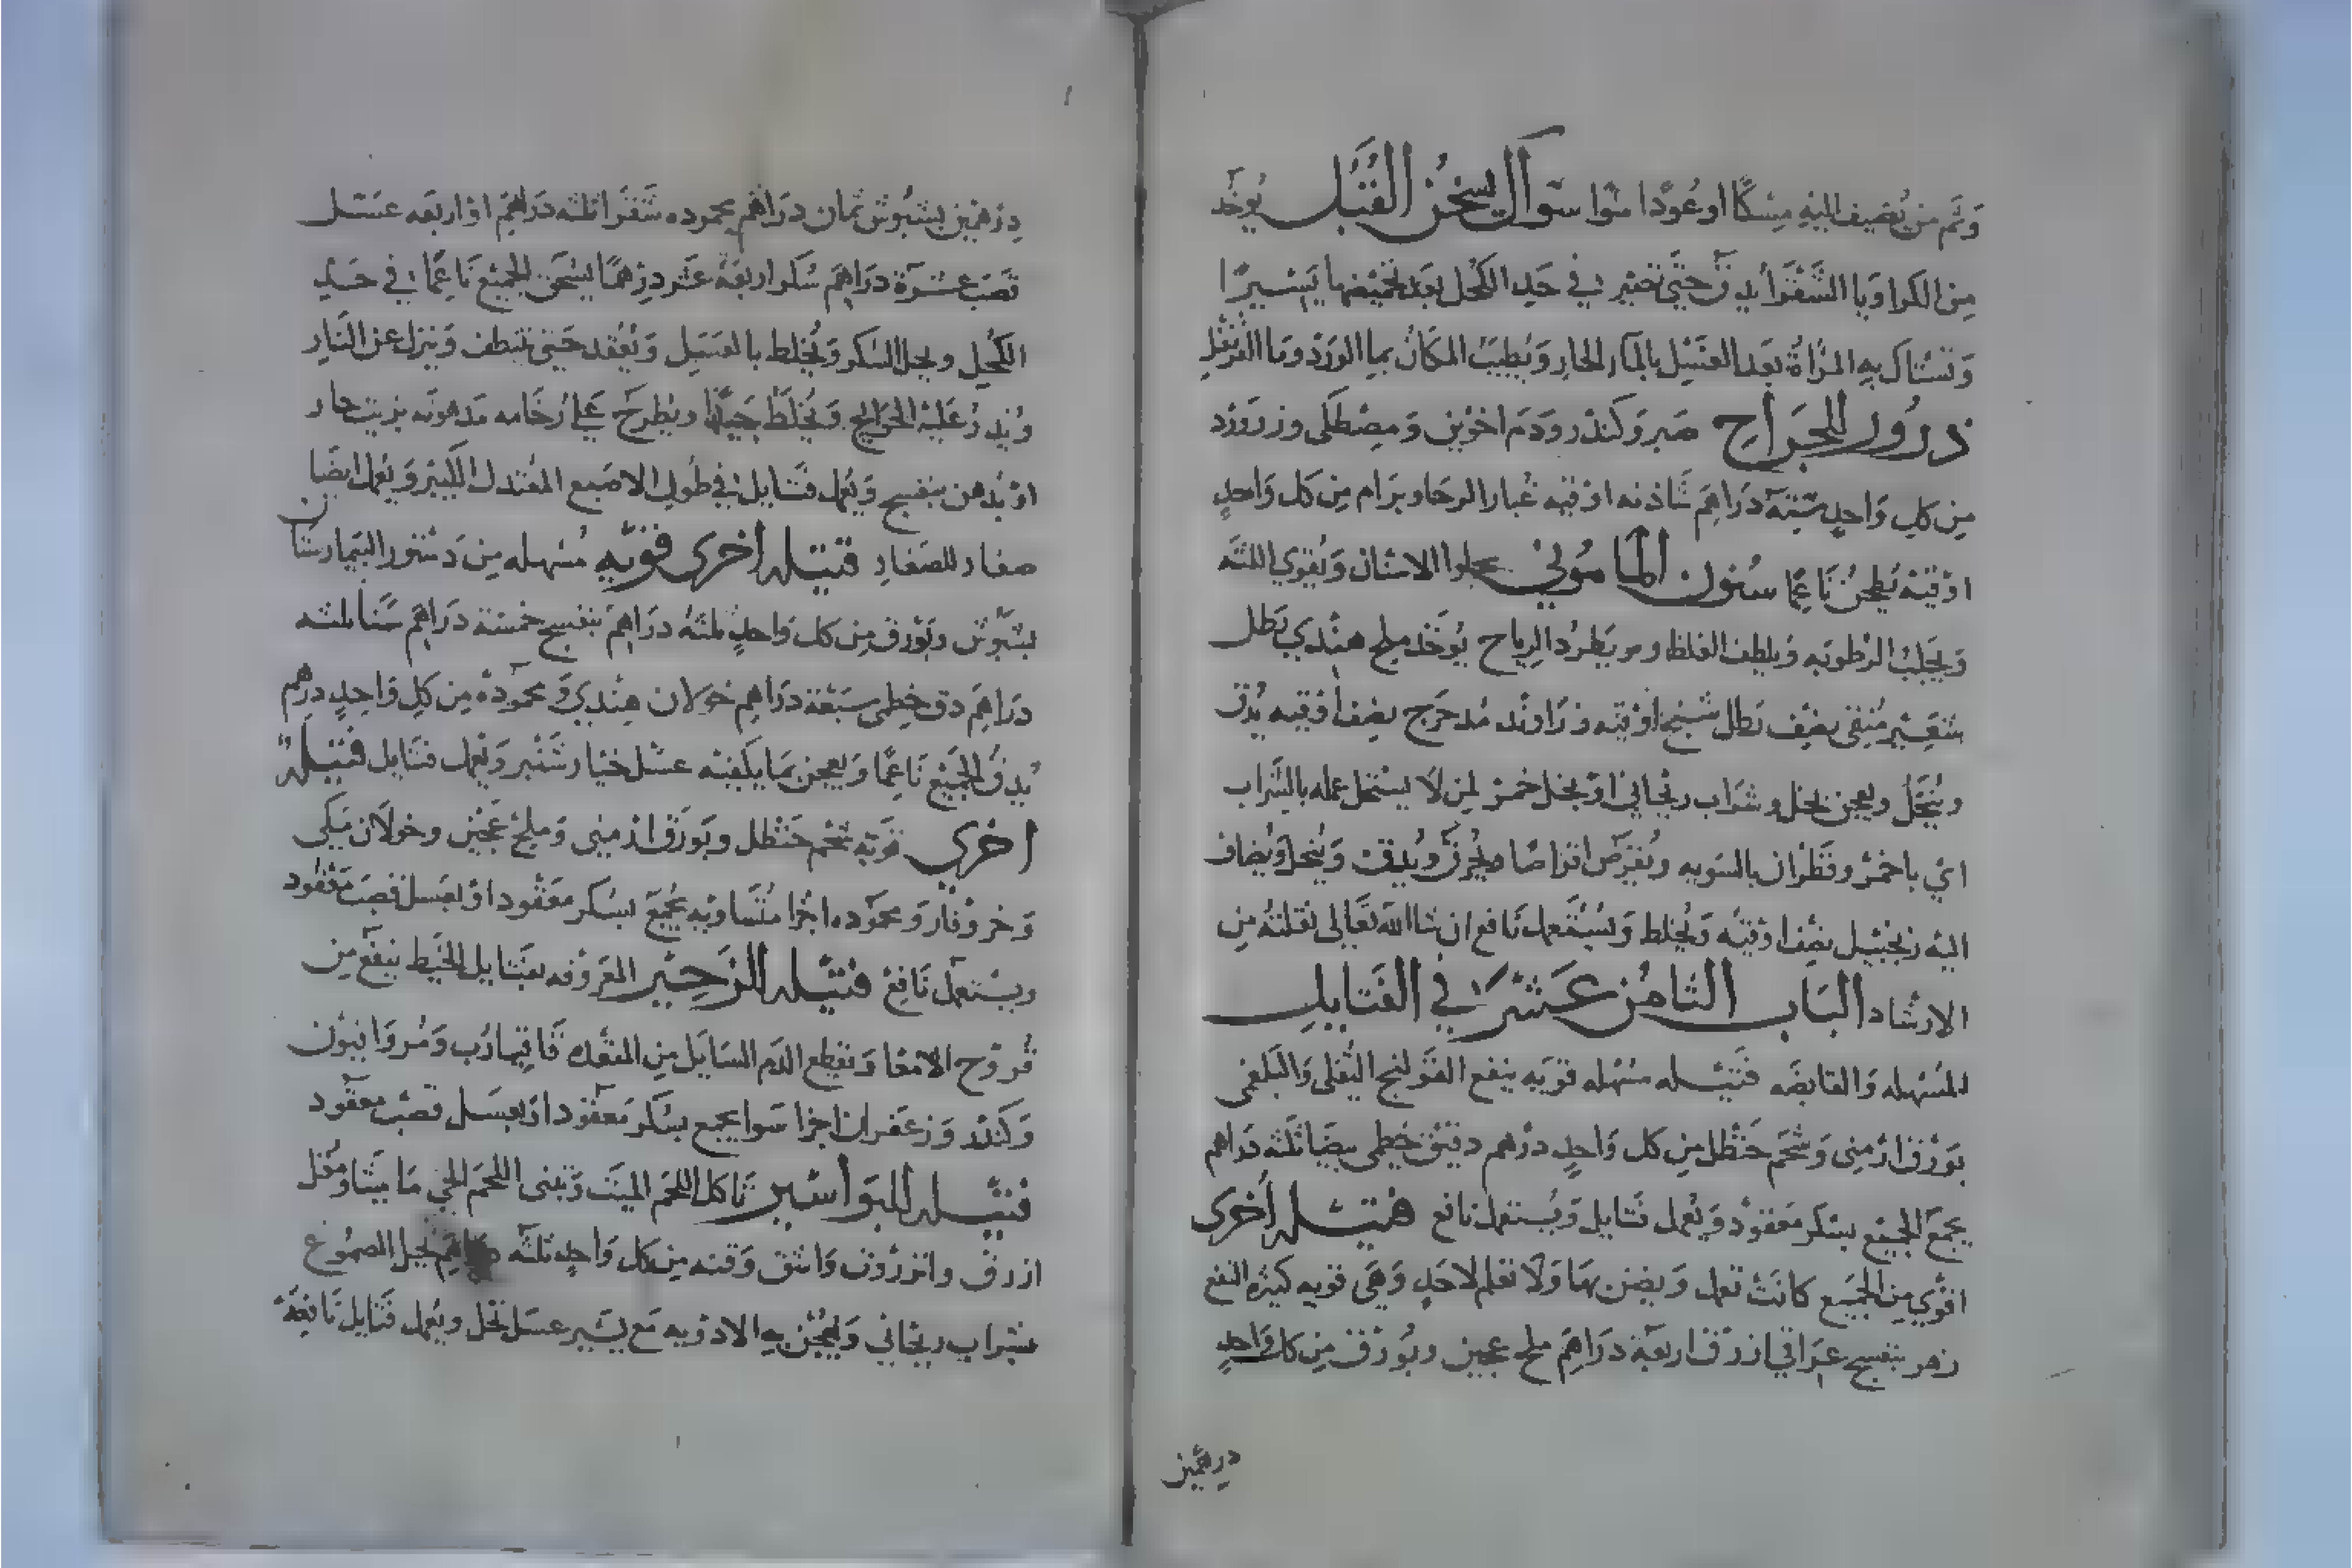 وَثَم من يُضيف اليهِ مِسْكًا او عُودًا سَوا سواك يسخن القُبُل يُوخَد
مِن الكراوَيا الشَقْرا يدق حَتي تصير في حَد الكحل بعد تحميصها يَسْيرًا
وَتَسْتاك بهِ المرْاةُ بَعد الغسْل بالمآء الحار وَيُطيبُ المكَانُ بما الورْد وما القرنفل
درُور للجراح صَبر وَكندر وَدَم اخوَين وَمصْطكى وزروَرْد
من كل وَاحدٍ ستة دَراهِم شاذنه اوقيه غبار الرحا وبرام من كل وَاحدٍ
اوقيَة يُطحنُ نَاعِمًا سُنون المأموني يجلوا الاسنان وَيُقوي اللثه
وَيجلبُ الرطوبه وَيلطف الغلظ ويطرُد الرياح يُوخَذ ملح هنْدي رَطل
شعَيْر مُنقى نصْف رَطل شيح اوقيه وزَراوَند مُدحرَج نصف اوقيه يُدق
ويُنخَل ويعجن بخل وشرَاب ريْحاني اوْ بخل خمر لمن لَا يستحل عمله بالشراب
اي باخمر وقَطْران بالسَويه ويُقرص اقراصًا ويُحرق ويُدق وَينخل ويُضاف
اليه زنجبيل نصف اوقيه وَيُخلط وَيُسْتَعمل نَافع ان شا الله تعَالى نقلته من
الارشاد البَاب الثامن عَشَر في الفَتايل
المُسْهله وَالقابضه فتيله مسْهله قويَه ينفع القوَلنج الثفلى وَالبَلغمى
بوَرْق ارْمنى وَشحَم حَنظل من كل وَاحدٍ درْهم دقيق خطمى بيضَا ثلثه دَراهم
يجمَع الجميْع بسكر مَعقودْ وَيُعمل فتايل وَيُستَعمل نافع فتيله اُخرى
اقوي من الجميَع كانَتْ تعمل وَيضن بهَا وَلَا تعلم لاحَدٍ وَهيَ قويه كثيرْه النفع
زهر بنفسج عرَاقي ازرَق اربَعة درَاهِم ملح عجين وبُورَق من كل وَاحدٍ
درهمين
دِرْهمَين بسْبُوش ثمان درَاهم محموده شَقْرا ثلثه درَاهِم او اربَعه عسَل
قصَب عشرَة درَاهِم سُكر اربَعة عشر درْهمًا يسْحَق الجميْع نَاعِمًا في حَد
الكحل ويحل السُكر وَيُخلط بالعَسَل وَيُعْقد حَتى وَينزل عن النَار
وُيذرُ عَليه الحوَايج وَيُخلَط جَيدًا ويُطرح عَلي رُخَامه مَدهونه بزيت حار
اوْ بُدهن بنفسج وَيُعمل فتَايل في طُول الاصَبع المعْتدل الكبير وَيُعمل ايضًا
صغار للصَغار فتيله اُخرى قويّه مُسْهله من دَسْتور البيمارستان
بسْبوش وبَوْرق من كل وَاحدٍ ثلثة درَاهم بنفسج خمسَة درَاهم سَنا ثلثه
درَاهِم دق خطمى سَبْعَة درَاهم خوَلان هنْدي وَ محمَودة من كل وَاحدٍ درهم
يُدق الجمَيْع نَاعِمًا وَيعجن بمَا يكَفيْه عسَل خيار شنبر وَيعمل فتَايل فتيله
اخري قويه شحَم حَنظل وبَورَق ارْمينى وَملح عَجين وخولَان مَكي
وَخروْ فار وَ محموده اجْزا متَسَاويه يجمَع بسُكر معَقود او بعَسل قصب معْقُود
ويسْتَعمل نَافع فتيله للزحير المعَروفه بفتايل الخيط ينفَع من
قُروْح الامْعا وَتقطع الدَم السَايَل من المقعَدة قَاقيا وَرُب وَ مُر وَافيوُن
وَكنْدر وَزعفران اجْزا سَوا يجمع بسكر مَعقود اوْ بعسَل قصب معقود
فتيله للبوَاسير تَاكل اللحَم الميَت وَتبنى اللحمَ الحي مَا ميثا ومُقل
ازرق وانزروت وَاشق وَقنه من كل وَاحدٍ ثلثَه درَاهم يُحل الصُموغ
بشرَاب ريْحاني وَيُعْجن بهِ الادوْيه مَع يسَير عسَل نحل ويُعمل فَتايل نَافعَة